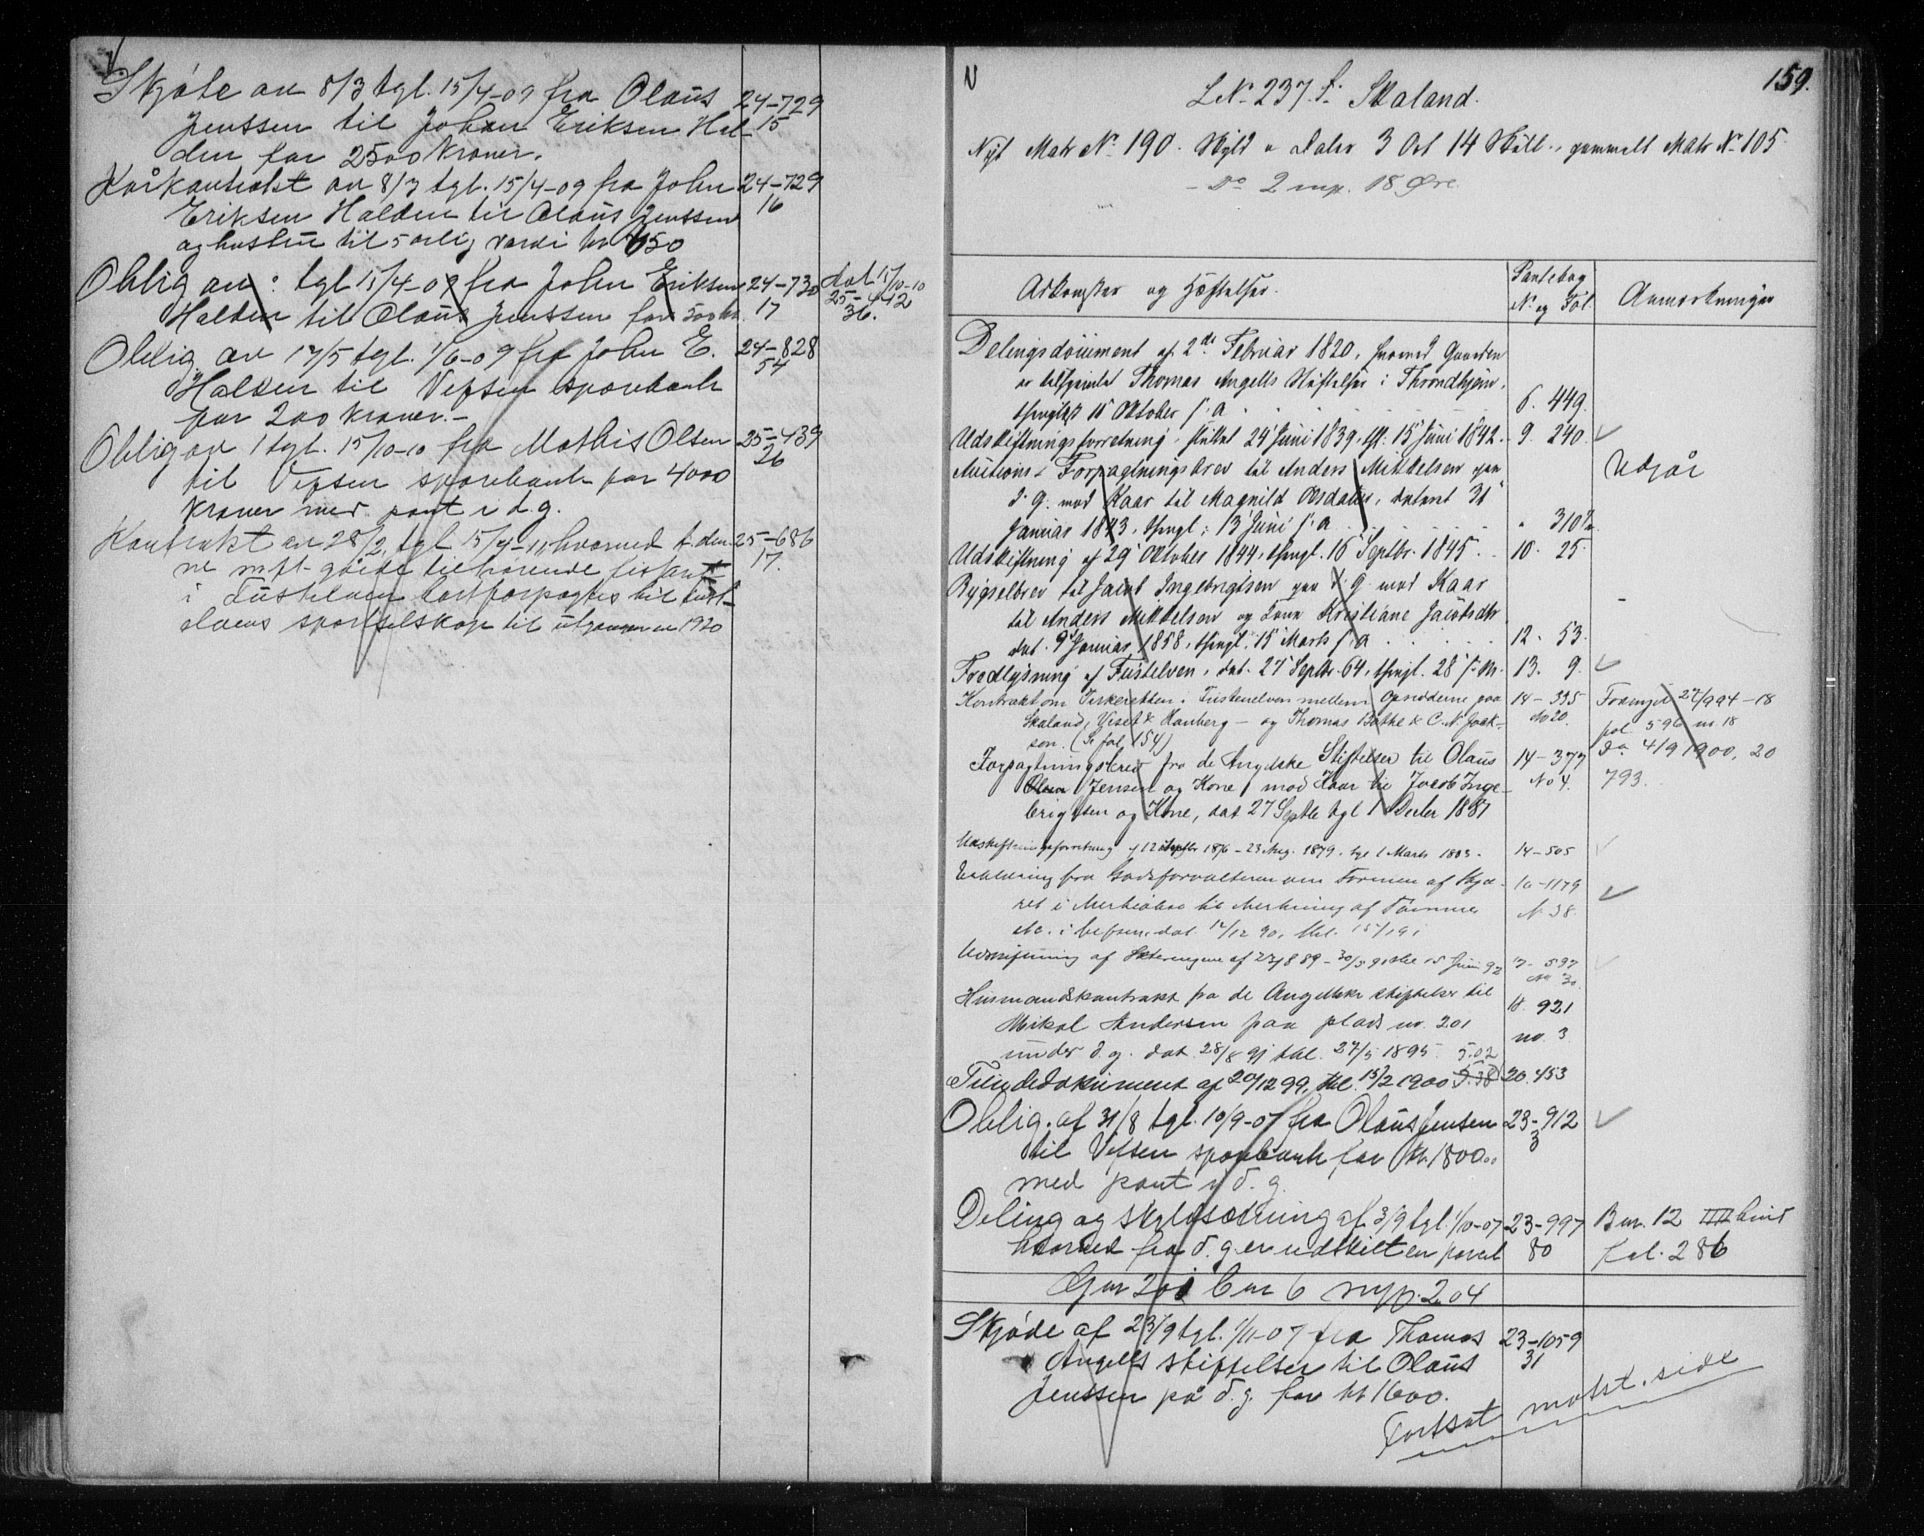 Skjøte av 8/3 tgl. 15/4-09 fra Olaus 24-729
Jenssen til Johan Eriksen Hal- 15
den for 2500 kroner.
Kårkontrakt av 8/3 tgl. 15/4-09 fra John 24-729
Eriksen Halden til Olaus Jenssen 16
og hustru til 5 årlig værdi kr 650
Oblig av : tgl 15/4-09 fra John Eriksen 24-730 Avl 15/10-10
Halden til Olaus Jenssen for 500 kr. 17 25-442
36.
Oblig av 17/5 tgl. 1/6-09 fra John E. 24-828
Halden til Vefsen sparebank 54
for 200 kroner.-
Oblig av 1 tgl. 15/10-10 fra Mathis Olsen 25-439
til Vefsen sparebank for 4000 26
kroner med pant i d.g.
Kontrakt av 28/2, tgl 15/4-11, hvorved den 25-686
ne mfl. gårde tilhørende fiskeri 17.
i Fustelven bortforpagtes til Fust-
elvens sportselskap til utgangen 1920
159.
LNo 237. f. Skaland.
Nyt Matr No 190. Skyld 0 Daler 3 Ort 14 Skill., gammelt Matr No 105
- Do 2 mp. 18 Øre.
Adkomster og Hæftelser. Pantebog No og Fol Anmærkninger
Delingsdocument af 2de Februar 1820, hvorved Gaarden
er tilhjemlet Thomas Angells Stiftelser i Throndhjem,
thinglæst 15 October s.a. 6. 449.
Udskiftningsforretning, sluttet 24 Juni 1839, tgl. 15 Juni 1842. 9. 240.
Auctions & Forpagtningsbrev til Anders Mikkelsen paa Udgår
d. g. mod Kaar til Magnild Olsdatter, dateret 31
Januar 1843, thingl. 13 Juni s.a. " 310
Udskiftning af 29 October 1844, thingl. 16 Septbr. 1845. 10. 25.
Bygselbrev til Jacob Ingebrigtsen paa d. g. mod Kaar
til Anders Mikkelsen og Kone Kristiane Jacobsdtr
dat. 9 Januar 1858, thingl. 15 Marts s.a. 12. 53.
Fredlysning af Fustelven, dat. 27 Septbr. 64, thingl. 28 s.M. 13. 9.
Kontrakt om Fiskeretten i Fustenelven mellem Opsidderne paa 14-335 Fornyet 27/9 94-18
Skaland, Hiset & Hanberg - og Thomas Bathe & C. N. Jack- No 20. fol 596 nr. 18
son. (Se fol 154) Do 4/9 1900, 20
Forpagtningsbrev fra de Angelske Stiftelser til Olaus 14-377 793.
Jensen og Kone mod Kaar til Jacob Inge- No 4.
brigtsen og Kone, dat 27 Septbr tgl 1 Decbr 1881
Udskiftningsforretning af 12 Septbr 1876-23 Aug. 1879. tgl 1 Marts 1883. 14-505
Erklæring fra Godsforvalteren om Formen af Skja- 16-1179
ret i Merkeøxe til Merkning af Tømmer N 38.
etc. i Vefsen. dat. 17/12 90,
Udskiftning af Sæterengene af 23/8 89-30/5 91 tkl 15 Juni 92 17-597
No 30.
Husmandskontrakt fra de Angellske Stiftelser til 18. 921
Mikal Andersen paa plads nr. 201 no. 3
under d.g. dat. 28/8 91 tkl. 27/5 1895. 5.02
Tiendedokument af 20/12 99, tkl. 15/2 1900 5.38 20. 453
Oblig. af 31/8 tgl. 10/9-07 fra Olaus Jensen 23-912
til Vefsen sparebank for kr. 1800.00 3
med pant i d. g.
Deling og skyldsætning af 3/9 tgl. 1/10-07 23-997 Bnr. 12 IIII bind
hvorved fra d. g. er udskilt en parcel 80 fol. 286
Gnr 200 bnr 6 myp. 2.04
Skjøde af 23/9 tgl. 1/11-07 fra Thomas 23-1059
Angells stiftelser til Olaus 31
Jenssen på d.g. for kr 1600.
Fortsat motst. side